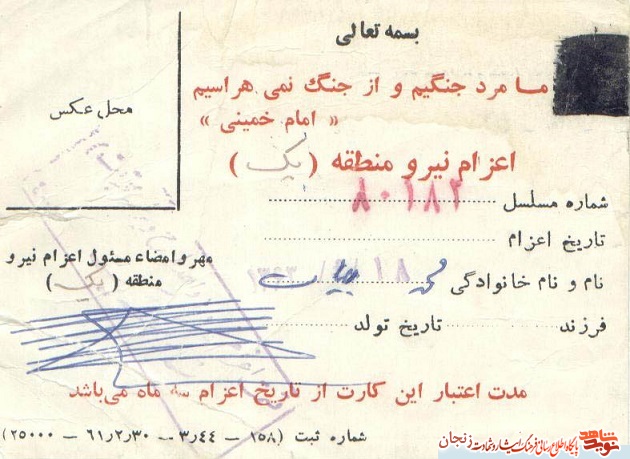 بسمه تعالی
ما مرد جنگیم و از جنگ نمی هراسیم
« امام خمینی »
اعزام نیرو منطقه ( یک )
محل عکس
شماره مسلسل ۸۰۱۸۲
تاریخ اعزام
نام و نام خانوادگی
فرزند تاریخ تولد
مهر و امضاء مسئول اعزام نیرو
منطقه ( یک )
مدت اعتبار این کارت از تاریخ اعزام سه ماه می‌باشد
شماره ثبت (۱۵۸ – ۳٫۴۴ – ۶۱٫۲٫۳۰ – ۲۵۰۰۰)
نوید شاهد
پایگاه اطلاع رسانی فرهنگ ایثار و شهادت زنجان